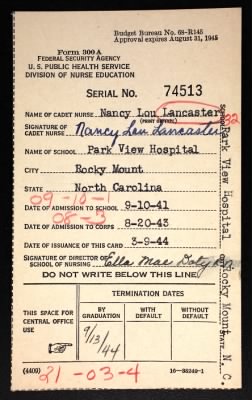 Budget Bureau No. 68-R145
Approval expires August 31, 1945
Form 300A
FEDERAL SECURITY AGENCY
U. S. PUBLIC HEALTH SERVICE
DIVISION OF NURSE EDUCATION
SERIAL No. 74513
NAME OF CADET NURSE Nancy Lou Lancaster
(PRINT OR TYPE)
SIGNATURE OF CADET NURSE Nancy Lou Lancaster
NAME OF SCHOOL Park View Hospital
CITY Rocky Mount
STATE North Carolina
09-10-1
DATE OF ADMISSION TO SCHOOL 9-10-41
08-3
DATE OF ADMISSION TO CORPS 8-20-43
DATE OF ISSUANCE OF THIS CARD 3-9-44
SIGNATURE OF DIRECTOR OF SCHOOL OF NURSING Ella Mae
DO NOT WRITE BELOW THIS LINE
THIS SPACE FOR CENTRAL OFFICE USE
TERMINATION DATES
BY GRADUATION
WITH DEFAULT
WITHOUT DEFAULT
9/13/44
(4409)
21-03-4
16-38249-1
Park View Hospital
Rocky Mount, N. C.
STATE